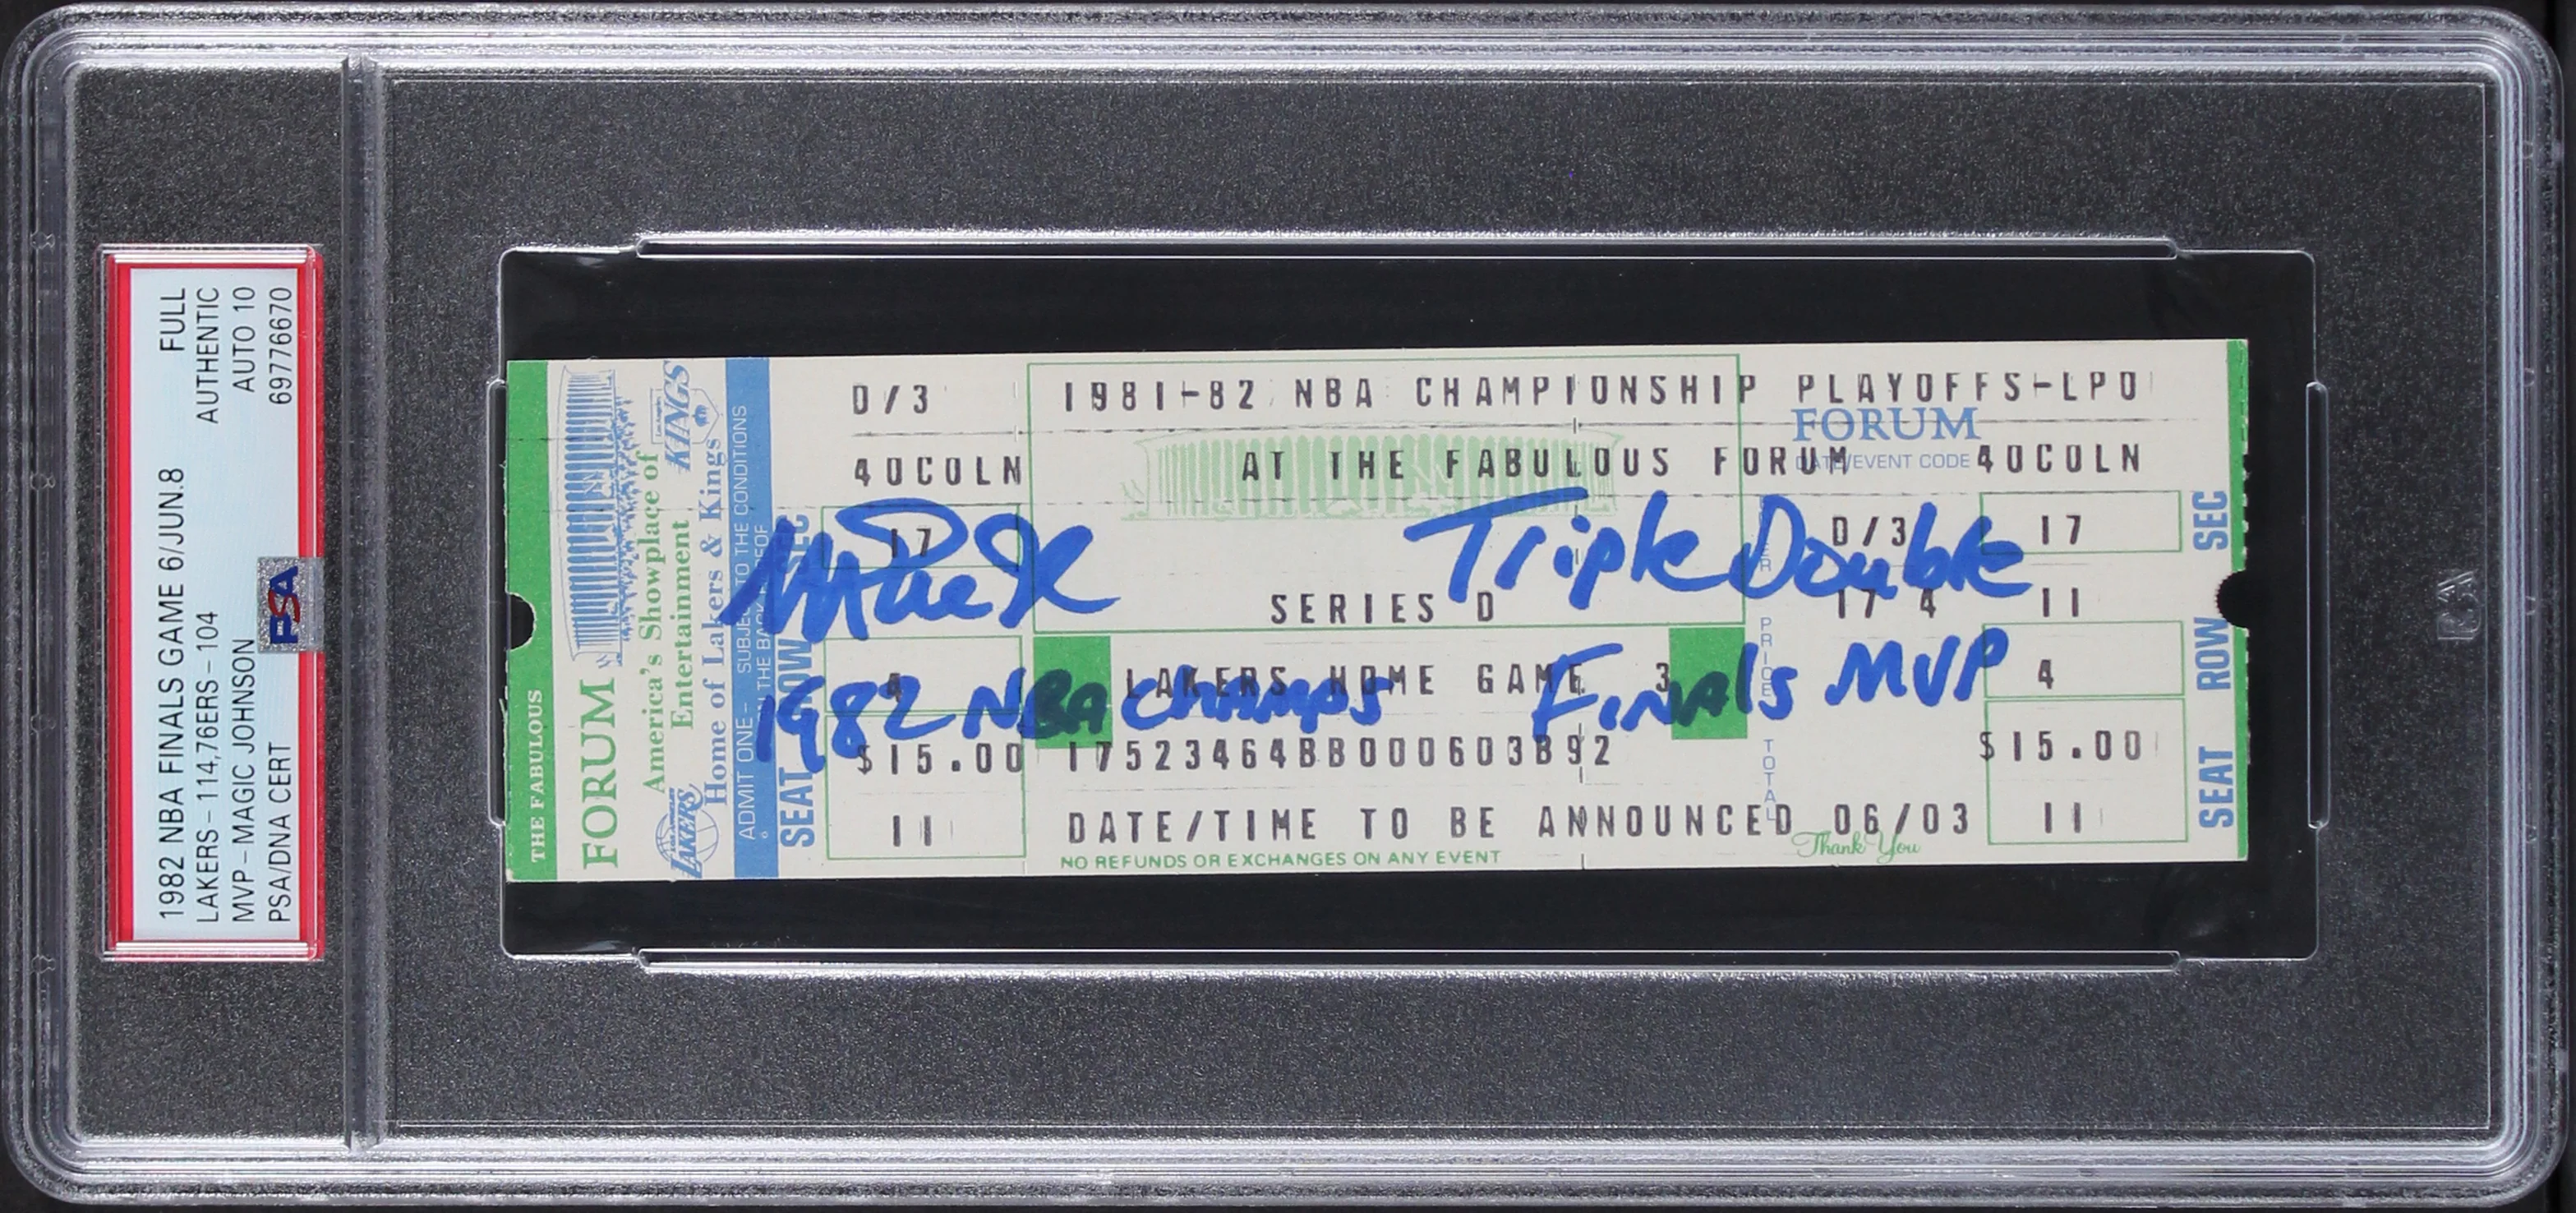 1982 NBA FINALS GAME 6/JUN.8 FULL
LAKERS-114,76ERS-104 AUTHENTIC
MVP-MAGIC JOHNSON AUTO 10
PSA/DNA CERT 69776670
PSA
THE FABULOUS
FORUM
America's Showplace of
Entertainment
Home of Lakers & Kings
LOS ANGELES
KINGS
LOS ANGELES
LAKERS
ADMIT ONE - SUBJECT TO THE CONDITIONS
ON THE BACK HEREOF
SEAT ROW SEC
D/3 1981-82 NBA CHAMPIONSHIP PLAYOFFS-LPO
FORUM
DATE/EVENT CODE
40COLN AT THE FABULOUS FORUM 40COLN
17 D/3 17
Magic Triple Double
SERIES D 17 4 11
4 LAKERS HOME GAME 3 4
1982 NBA Champs Finals MVP
$15.00 17523464BB000603B92 $15.00
PRICE
TOTAL
11 DATE/TIME TO BE ANNOUNCED 06/03 11
Thank You
NO REFUNDS OR EXCHANGES ON ANY EVENT
SEAT ROW SEC